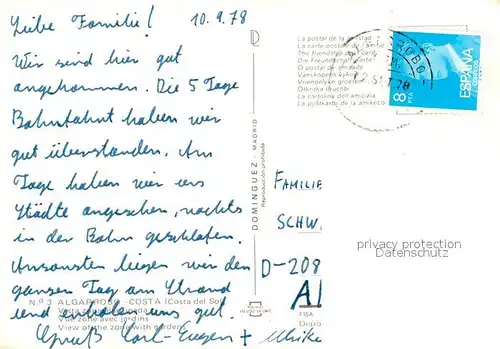 Liebe Familie! 10.9.78
Wir sind hier gut
angekommen. Die 5 Tage
Bahnfahrt haben wir
gut überstanden. Am
Tage haben wir uns
Städte angesehen, nachts
in der Bahn geschlafen.
Ansonsten liegen wir den
ganzen Tag am Strand
und erholen uns gut.
Gruß Karl-Eugen + Ulrike
Nº 3 ALGARROBO - COSTA (Costa del Sol)
Vue zone avec jardins
View of the zone with gardens
DOMINGUEZ - MADRID
Reproducción prohibida
La postal de la amistad
La carte postale de l'amitié
The friendship postcard
Die Freundschaftskarte
O postal de amizade
Vänskapens kykort
Vriendelyke groeten
La cartolina dell'amicizia
La poŝtkarto de la amikeco
ESPAÑA
8 PTA
FAMILIE
SCHW.
D-208
A1
FISA
privacy protection
Datenschutz